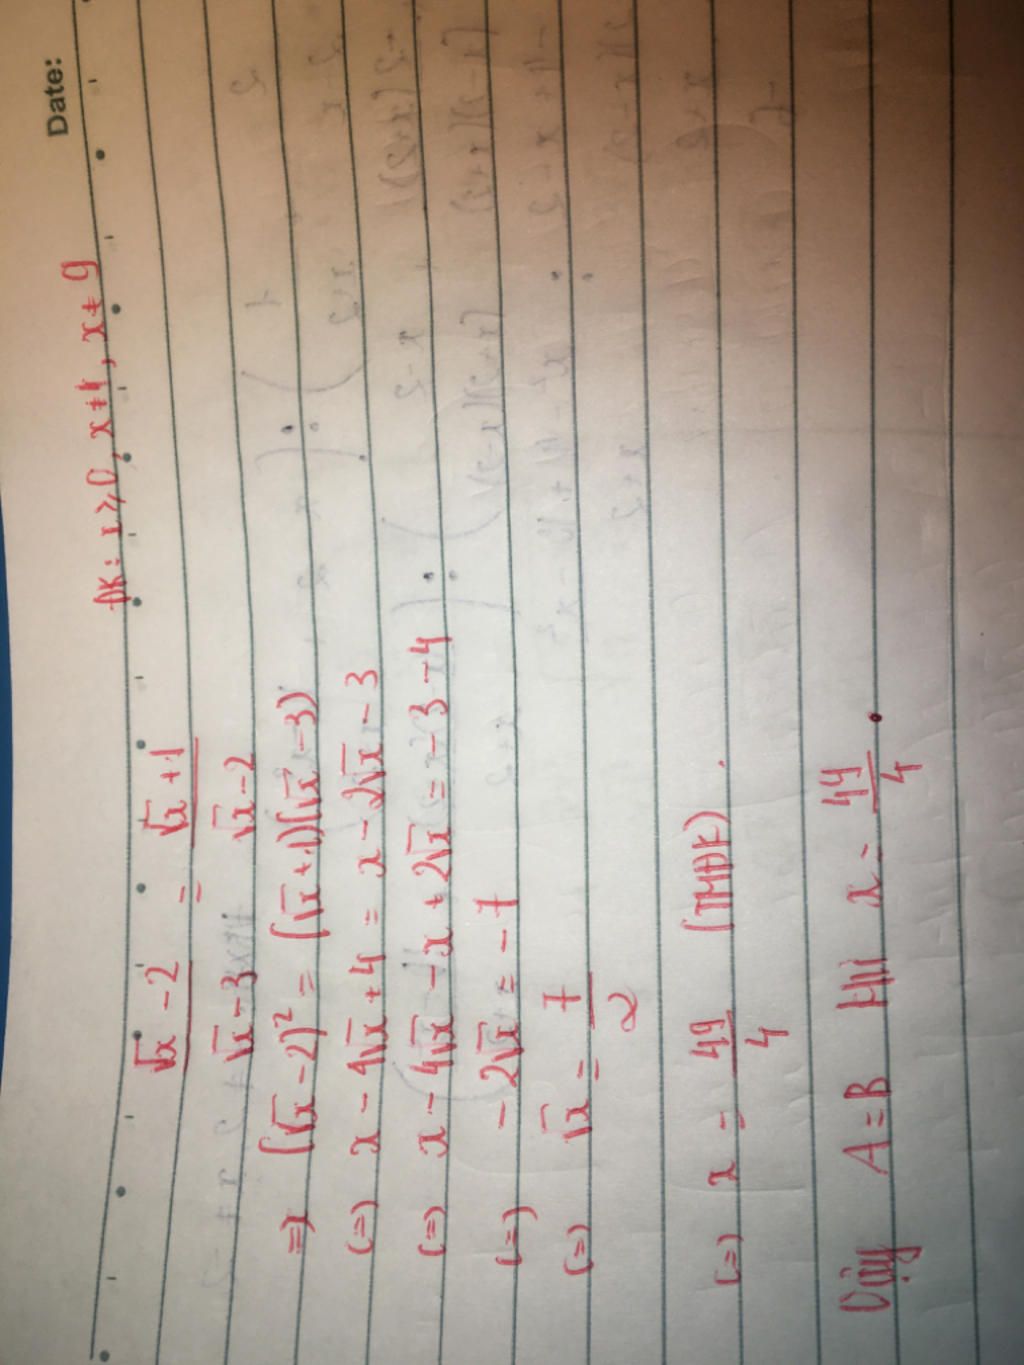 Date:
ĐK: x ⩾ 0, x ≠ 4, x ≠ 9
(√x - 2)/(√x - 3) = (√x + 1)/(√x - 2)
=) (√x - 2)² = (√x + 1)(√x - 3)
(=) x - 4√x + 4 = x - 2√x - 3
(=) x - 4√x - x + 2√x = -3 - 4
(=) -2√x = -7
(=) √x = 7/2
(=) x = 49/4 (TMĐK).
Vậy A = B khi x = 49/4.